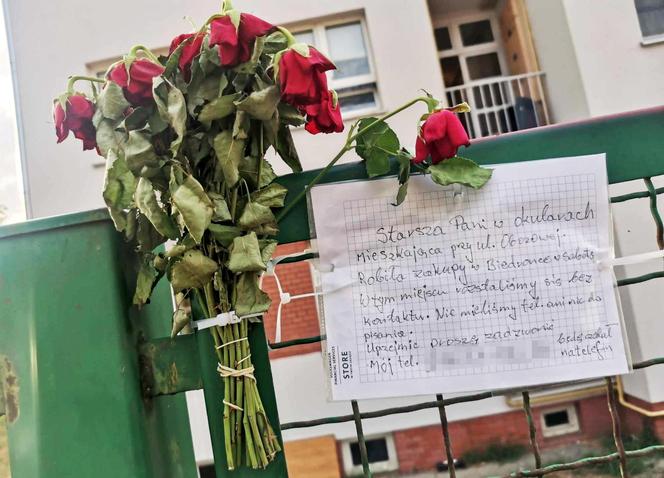 Starsza Pani w okularach
Mieszkająca przy ul. Obozowej.
Robiła zakupy w Biedronce w sobotę
W tym miejscu rozstaliśmy się bez
kontaktu. Nie mieliśmy tel. ani nic do
pisania.
Uprzejmie proszę zadzwonić
będę czekał
na telefon
Mój tel.
STORE